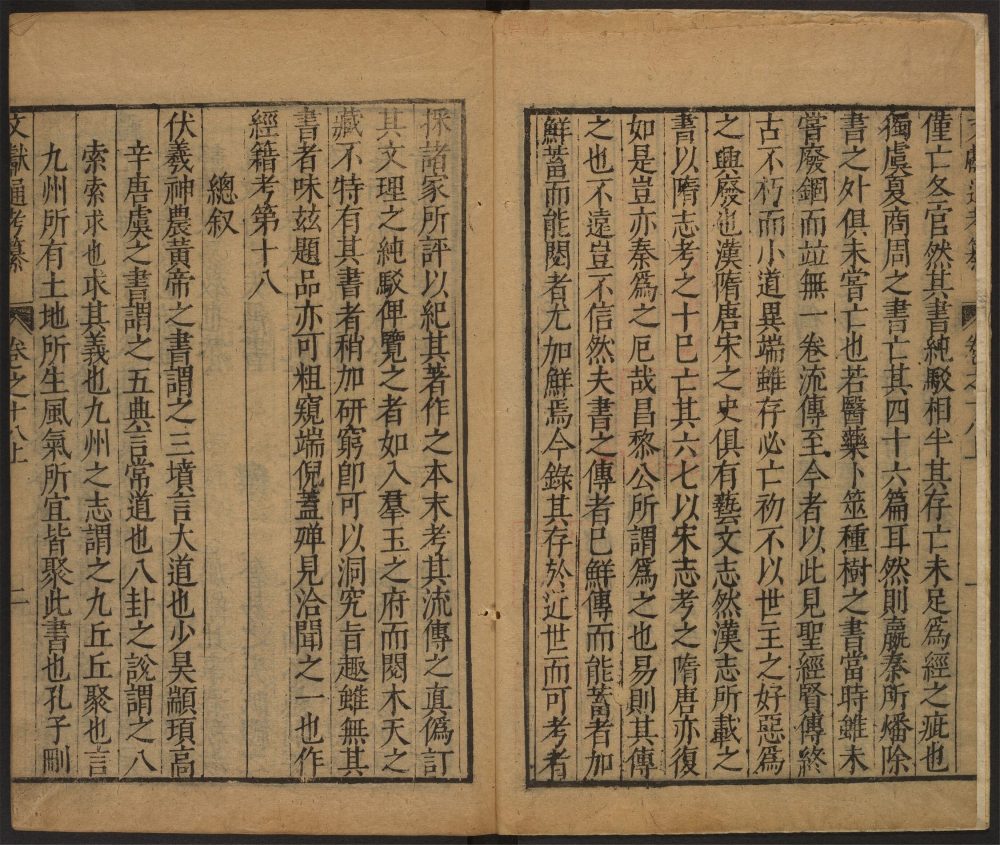 僅亡冬官然其書純駁相半其存亡未足爲經之疵也
獨虞夏商周之書亡其四十六篇耳然則嬴秦所燔除
書之外俱未嘗亡也若醫藥卜筮種樹之書當時雖未
嘗廢錮而並無一卷流傳至今者以此見聖經賢傳終
古不朽而小道異端雖存必亡初不以世主之好惡爲
之興廢也漢隋唐宋之史俱有藝文志然漢志所載之
書以隋志考之十已亡其六七以宋志考之隋唐亦復
如是豈亦秦爲之厄哉昌黎公所謂爲之也易則其傳
之也不遠豈不信然夫書之傳者已鮮傳而能蓄者加
鮮蓄而能閱者尤加鮮焉今錄其存於近世而可考者
採諸家所評以紀其著作之本末考其流傳之直僞訂
其文理之純駁俾覽之者如入羣玉之府而閱木天之
藏不特有其書者稍加研窮卽可以洞究旨趣雖無其
書者味玆題品亦可粗窺端倪蓋殫見洽聞之一也作
經籍考第十八
總叙
伏羲神農黃帝之書謂之三墳言大道也少昊顓頊高
辛唐虞之書謂之五典言常道也八卦之說謂之八
索索求也求其義也九州之志謂之九丘丘聚也言
九州所有土地所生風氣所宜皆聚此書也孔子刪
文獻通考纂 卷之十八上 二